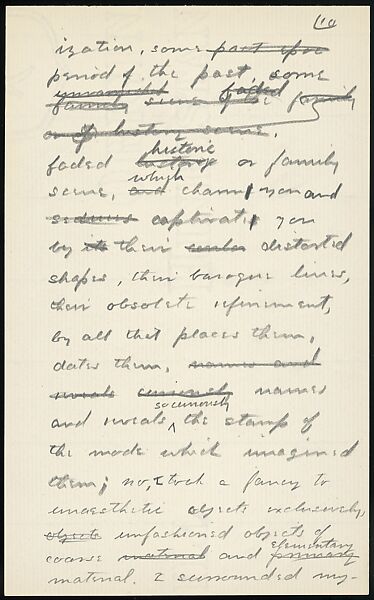 10
ization, some past epoc
period of the past, some
unvarnished faded
family scene of the family
or of history scene.
historic
faded history or family
which
scene, and charm you and
seduces captivate you
by its their distorted
shapes, their baroque lines,
their obsolete refinement,
by all that places them,
dates them, names and
reveals curiously names
so curiously
and reveals ^ the stamp of
the mode which imagined
them; no, I took a fancy to
unaesthetic objects exclusively,
objects unfashioned objects of
elementary
coarse material and primary
material. I surrounded my-